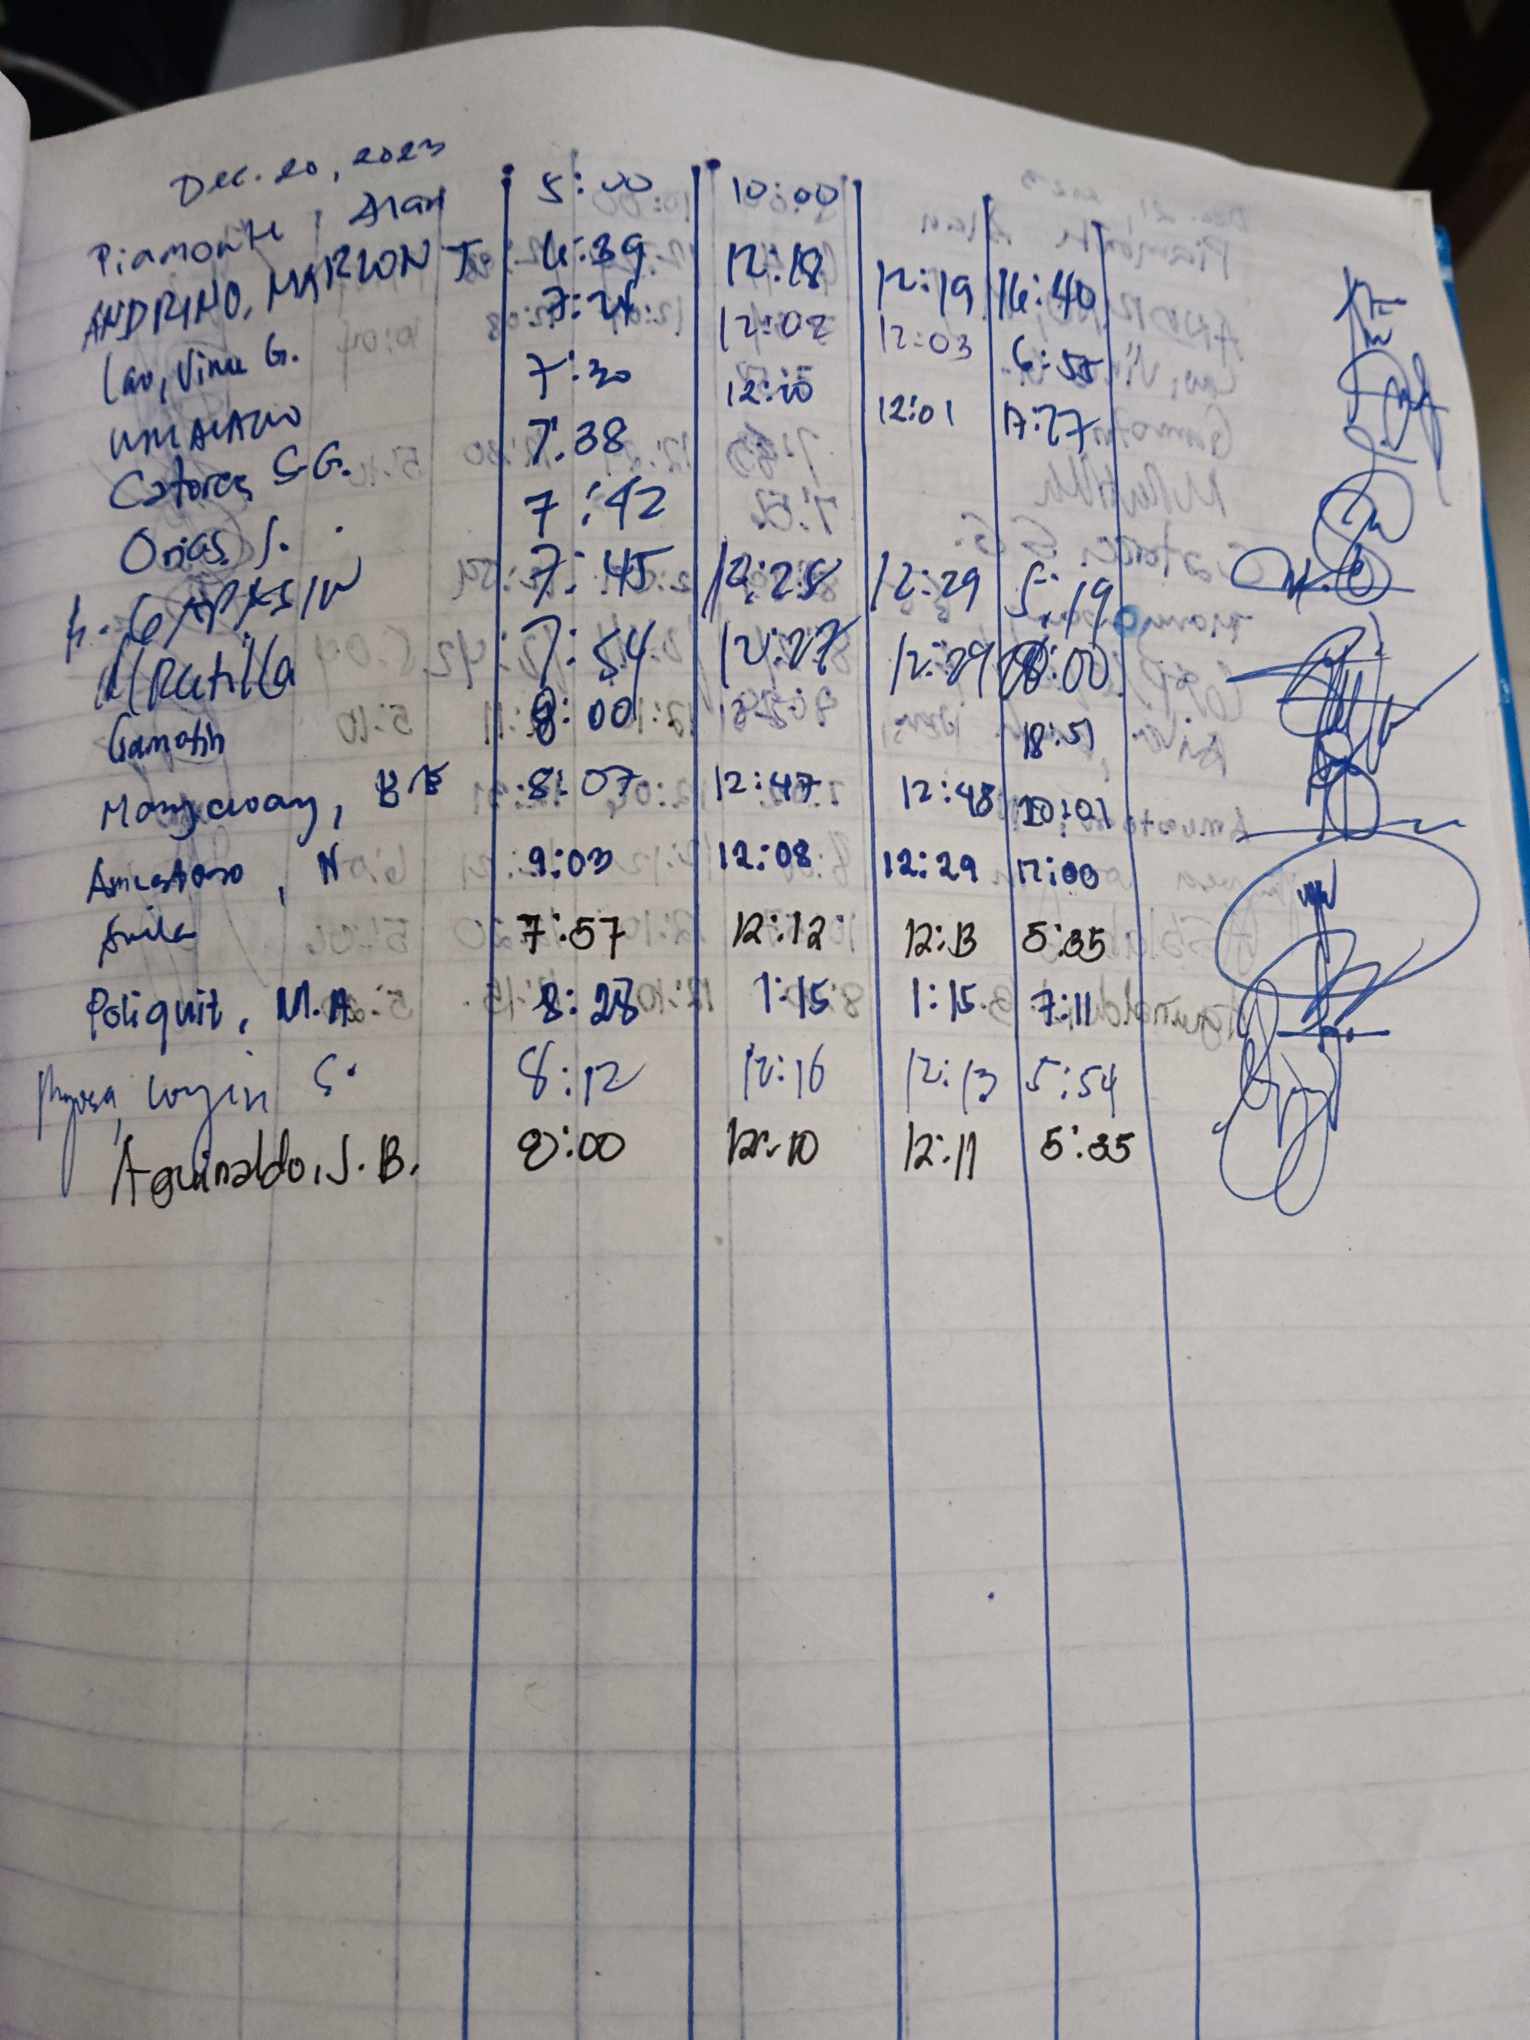 Dec. 20, 2023
Piamonte, Alan 5:00 10:00
ANDRINO, MARLON T. 6:39 12:18 12:19 16:40
Lao, Vince G. 7:24 12:02 12:03 6:55
7:30 12:10 12:01 17:27
Catores S.G. 7:38
Orias J. 7:42
7:45 12:28 12:29 5:19
7:54 12:27 12:29 :00
Gamotin 8:00 18:51
Mangawang, 8:07 12:47 12:48 10:01
, N 9:03 12:08 12:29 17:00
Avila 7:57 12:12 12:13 5:35
Poliquit, M.A. 8:28 1:15 1:15 7:11
S. 8:12 12:16 12:13 5:54
Aguinaldo, J. B. 8:00 12:10 12:11 5:35